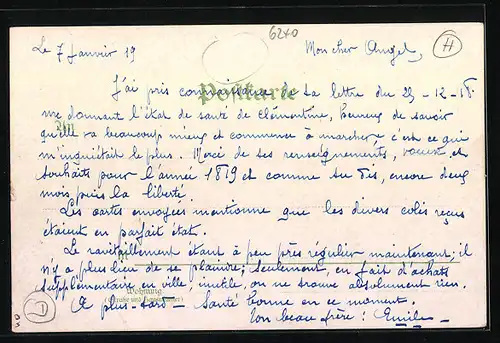 6240
Le 7 Janvier 19 Mon cher Angel, H
J'ai pris connaissance de ta lettre du 29-12-18
Postkarte
me donnant l'état de santé de Clémentine, heureux de savoir
qu'elle va beaucoup mieux et commence à marcher, c'est ce qui
An
m'inquiétait le plus. Merci de tes renseignements, voeux et
souhaits pour l'année 1819 et comme tu dis, encore deux
mois puis la liberté.
Les cartes envoyées mentionne que les divers colis reçus
étaient en parfait état.
Le ravitaillement étant à peu près régulier maintenant; il
n'y a plus lieu de se plaindre; seulement, en fait d'achats
supplémentaire en ville, inutile, on ne trouve absolument rien.
Wohnung
(Straße und Hausnummer)
A plus-tard — Santé bonne en ce moment.
Ton beau frère: Emile